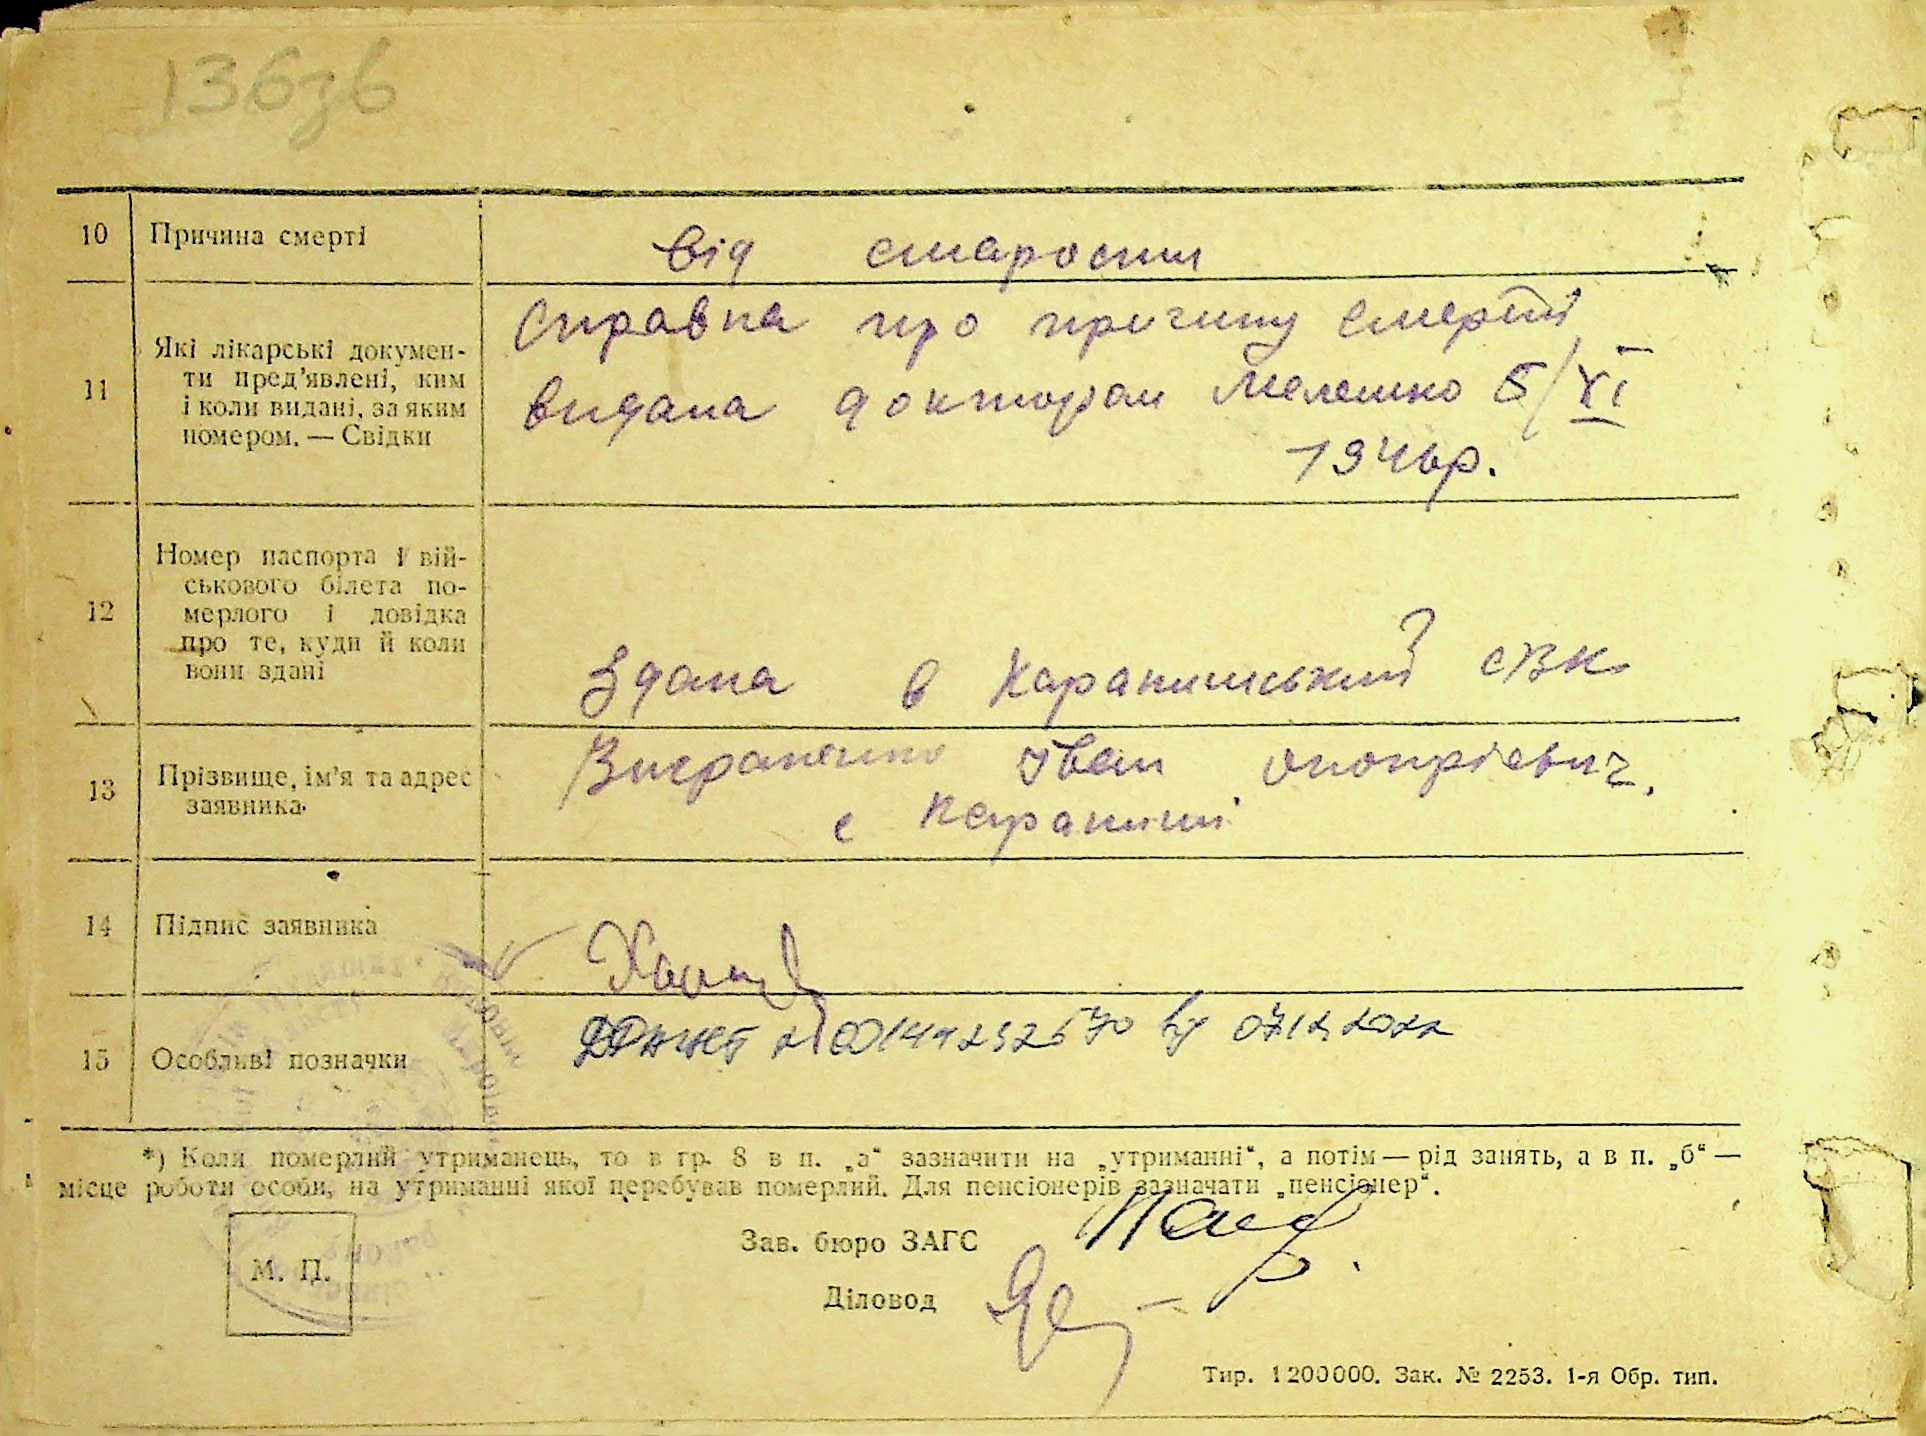 136зв
10 Причина смерті
від старости
11 Які лікарські докумен-
ти пред'явлені, ким
і коли видані, за яким
номером. — Свідки
Справка про причину смерті
видана доктором Мелешко 5/XI
194 р.
12 Номер паспорта і вій-
ськового білета по-
мерлого і довідка
про те, куди й коли
вони здані
Здана в Каранишський СВК
13 Прізвище, ім'я та адрес
заявника
Іван Онопрієвич.
с Караниші
14 Підпис заявника
15 Особливі позначки
07 12 2022
*) Коли померлий утриманець, то в гр. 8 в п. „а“ зазначити на „утриманні“, а потім — рід занять, а в п. „б“ —
місце роботи особи, на утриманні якої перебував померлий. Для пенсіонерів зазначати „пенсіонер“.
Зав. бюро ЗАГС
М. П.
Діловод
Тир. 1200000. Зак. № 2253. 1-я Обр. тип.